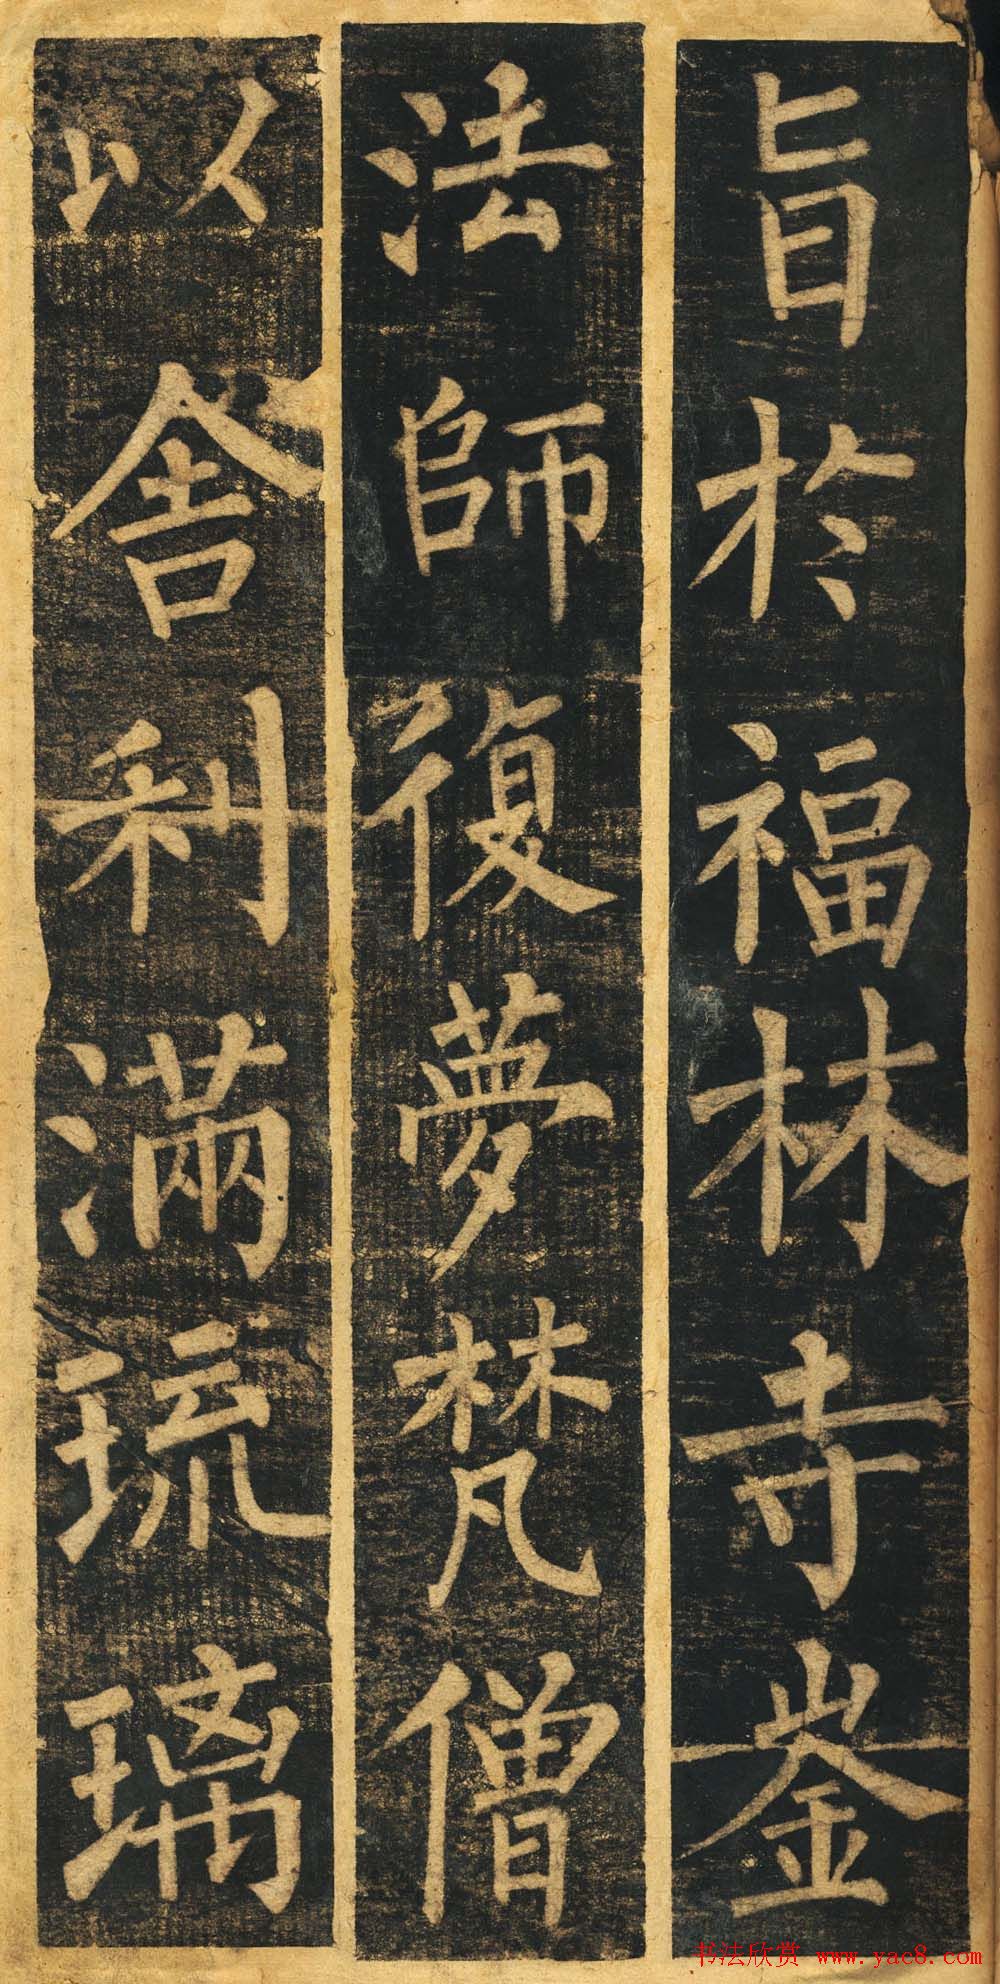 旨於福林寺崟
法師復夢梵僧
以舍利滿琉璃
书法欣赏 www.yac8.com